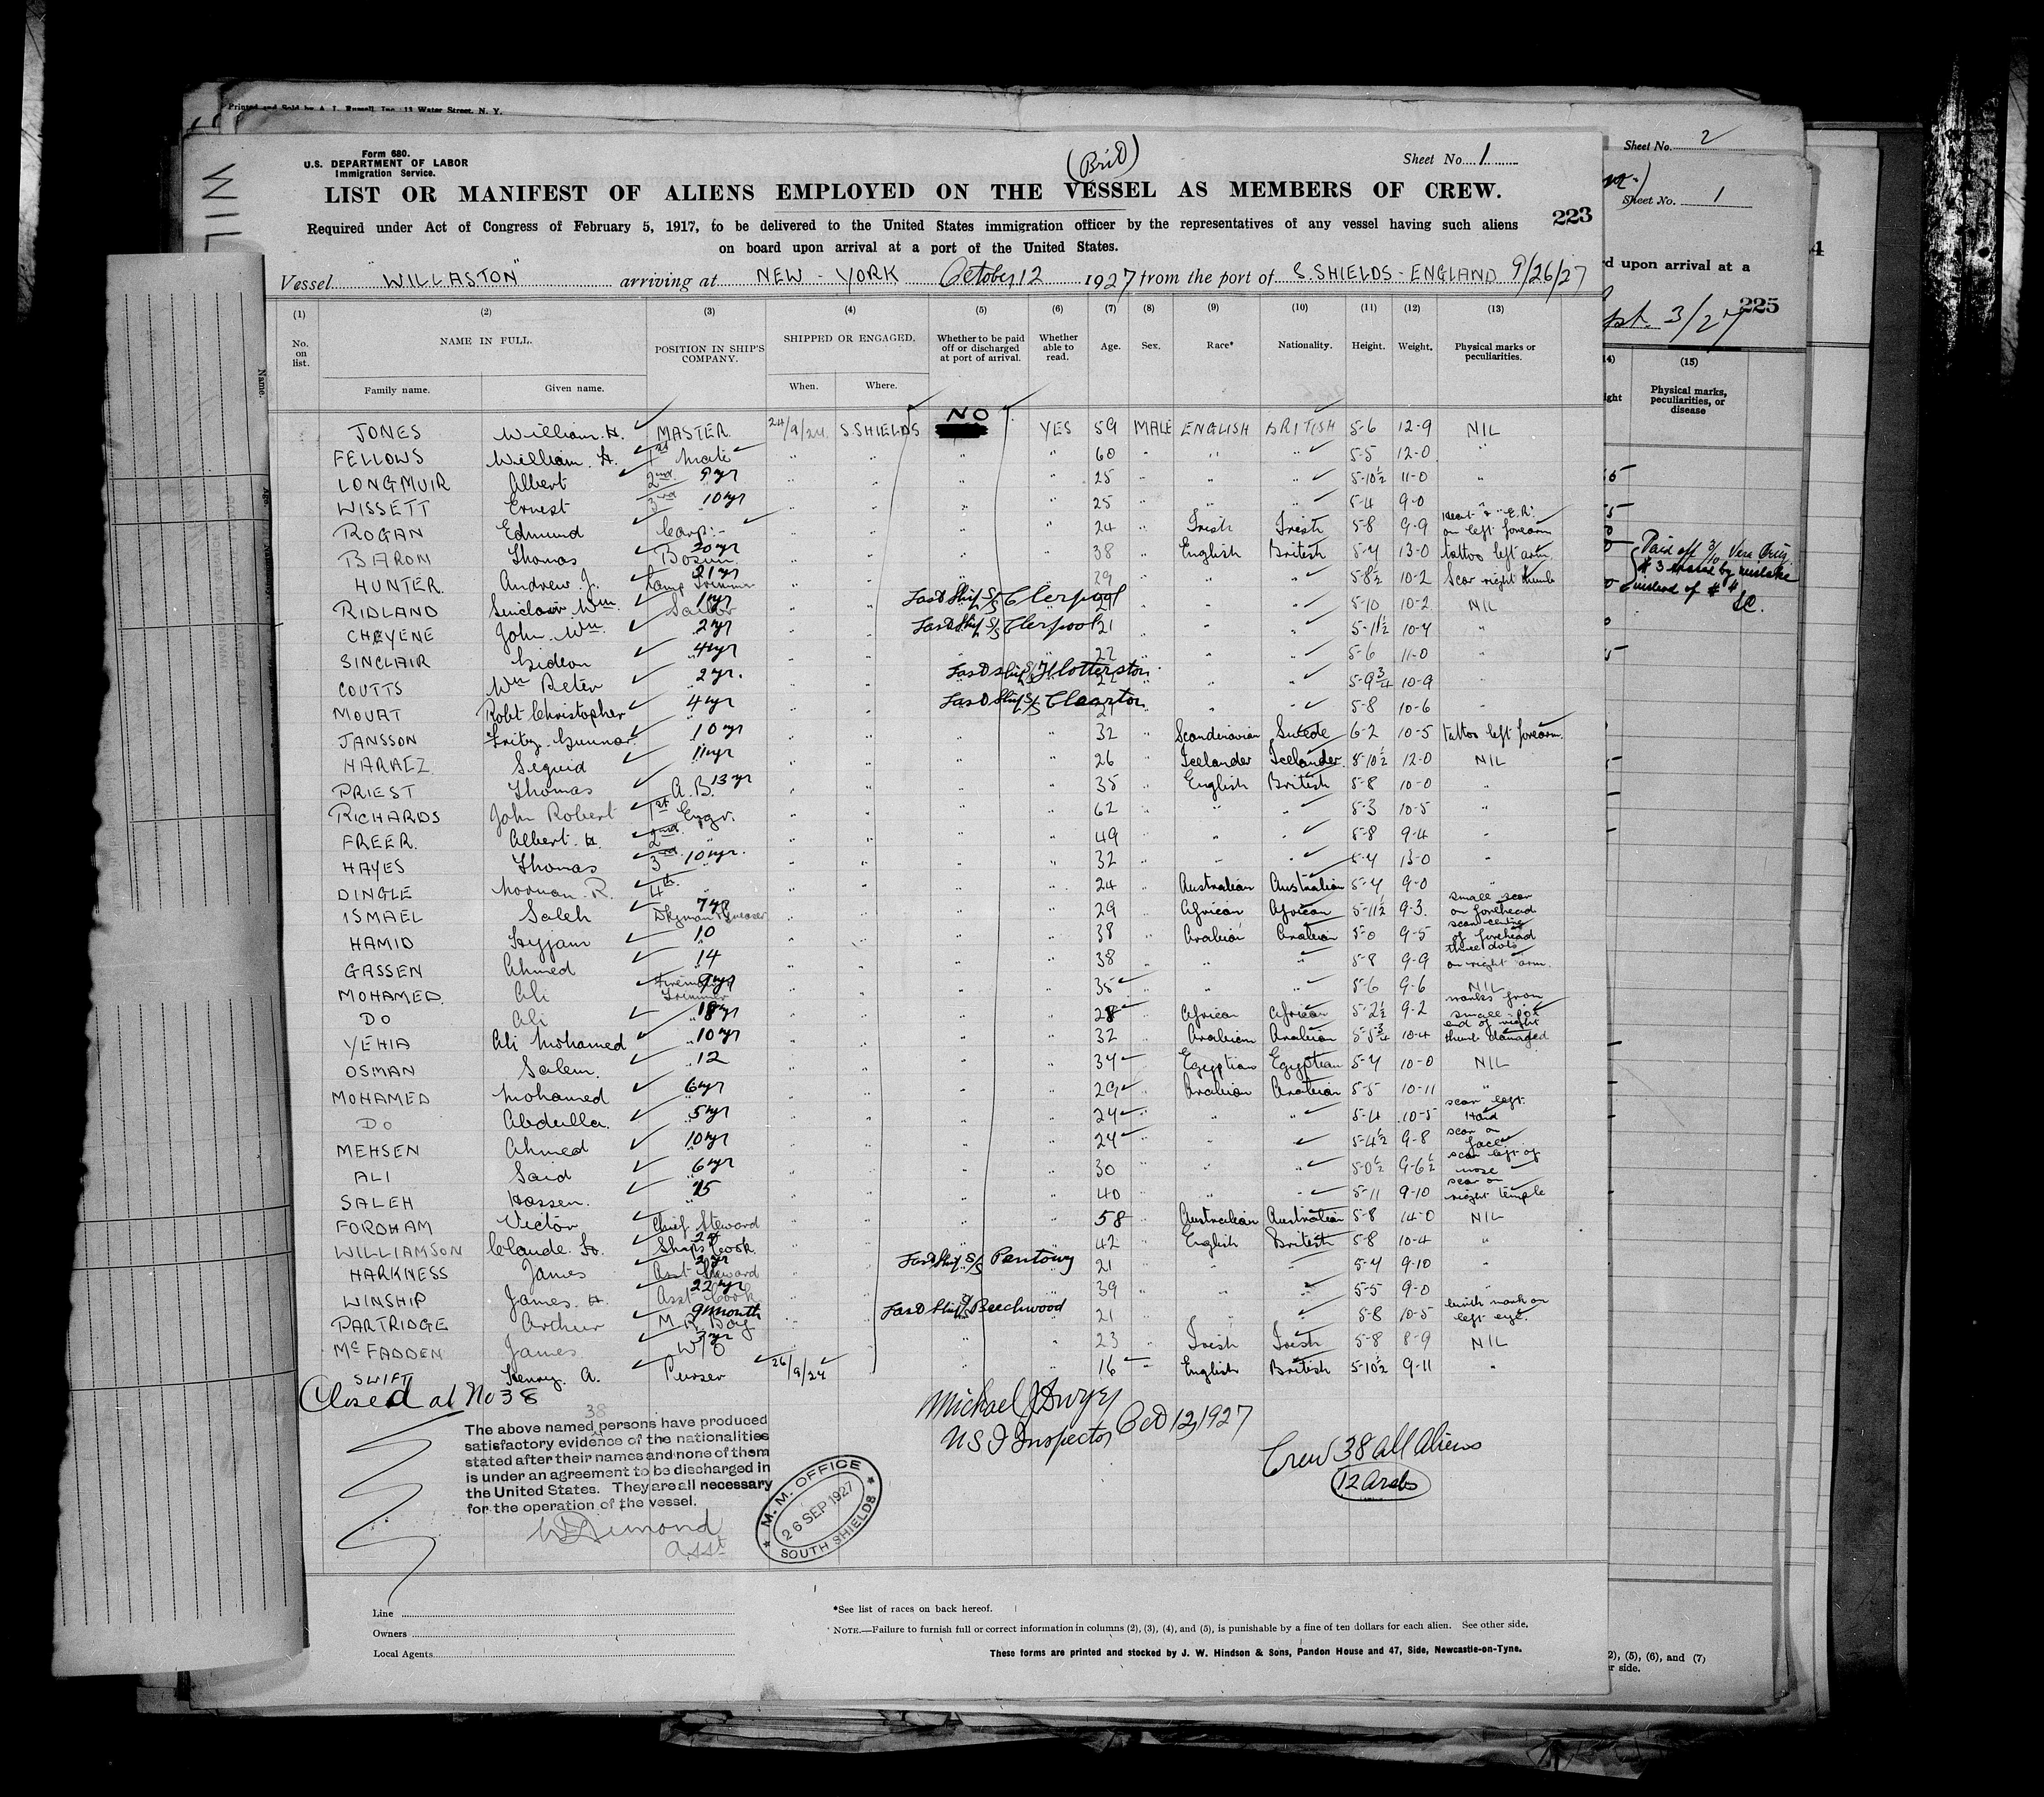 Printed and Sold by A. L. Russell, Inc., 11 Water Street, N. Y.
Sheet No. 2
Sheet No. 1
Form 680.
U.S. DEPARTMENT OF LABOR
Immigration Service.
(Brit)
Sheet No. 1
LIST OR MANIFEST OF ALIENS EMPLOYED ON THE VESSEL AS MEMBERS OF CREW.
223
Required under Act of Congress of February 5, 1917, to be delivered to the United States immigration officer by the representatives of any vessel having such aliens
on board upon arrival at a port of the United States.
Vessel "WILLASTON" arriving at NEW-YORK October 12 1927 from the port of S. SHIELDS - ENGLAND 9/26/27
(1) (2) (3) (4) (5) (6) (7) (8) (9) (10) (11) (12) (13)
No. on list. NAME IN FULL. Family name. Given name. POSITION IN SHIP'S COMPANY. SHIPPED OR ENGAGED. When. Where. Whether to be paid off or discharged at port of arrival. Whether able to read. Age. Sex. Race* Nationality. Height. Weight. Physical marks or peculiarities.
JONES William. H. MASTER. 24/9/27. S. SHIELDS NO YES 59 MALE ENGLISH BRITISH 5-6 12-9 NIL
FELLOWS William. H. 1st Mate " " " " 60 " " " 5-5 12-0 "
LONGMUIR Albert 2nd " 9yr " " " " 25 " " " 5-10½ 11-0 "
WISSETT Ernest 3rd " 10yr " " " " 25 " " " 5-4 9-0 "
ROGAN Edmund Carp:- " " " " 24 " Irish Irish 5-8 9-9 Heart & "E.R." on left forearm
BAROM Thomas Bosun 20yr " " " " 38 " English British 5-7 13-0 tattoo left arm
HUNTER. Andrew J. Lamp Trimmer 21yr " " " " 29 " " " 5-8½ 10-2 Scar right thumb
RIDLAND Sinclair Wm. Sailor 1yr " " Last Ship S/S Clerpool 21 " " " 5-10 10-2 NIL
CHEYENE John. Wm. " 2yr " " Last Ship S/S Clerpool 21 " " " 5-11½ 10-7 "
SINCLAIR Gideon " 4yr " " " " 22 " " " 5-6 11-0 "
COUTTS Wm Peter " 2yr. " " Last Ship S/S " " " 5-9¾ 10-9 "
MOUAT Robt Christopher " 4yr " " Last Ship S/S 21 " " " 5-8 10-6 "
JANSSON Fritz. Gunnar. " 10yr " " " " 32 " Scandinavian Swede 6-2 10-5 tattoo left forearm.
HARAEZ Seguid " 11yr " " " " 26 " Icelander Icelander. 5-10½ 12-0 NIL
PRIEST Thomas A.B. 13yr " " " " 35 " English British 5-8 10-0 "
RICHARDS John Robert 1st Engr. " " " " 62 " " " 5-3 10-5 "
FREER. Albert. H. 2nd " " " " " 49 " " " 5-8 9-4 "
HAYES Thomas 3rd " 10yr. " " " " 32 " " " 5-7 13-0 "
DINGLE Norman. R. 4th. " " " " " 24 " Australian Australian 5-7 9-0 "
ISMAEL Saleh Dkyman & Greaser 7yr " " " " 29 " African African 5-11½ 9-3. small scar on forehead
HAMID Hyjam " 10 " " " " 38 " Arabian Arabian 5-0 9-5 scar centre of forehead
GASSEN Ahmed " 14 " " " " 38 " " " 5-8 9-9 three dots on right arm.
MOHAMED Ali Fireman & Trimmer 9yr " " " " 35 " " " 5-6 9-6 NIL
DO Ali " 18yr " " " " 28 " African African 5-2½ 9-2 marks from small pox
YEHIA Ali Mohamed " 10yr " " " " 32 " Arabian Arabian 5-5¾ 10-4 end of right thumb damaged
OSMAN Salem. " 12 " " " " 34 " Egyptian Egyptian 5-7 10-0 NIL
MOHAMED Mohamed " 6yr " " " " 29 " Arabian Arabian 5-5 10-11 "
DO Abdulla. " 5yr " " " " 24 " " " 5-4 10-5 scar left Hand
MEHSEN Ahmed " 10yr " " " " 24 " " " 5-4½ 9-8 scar on face
ALI Said " 6yr " " " " 30 " " " 5-0½ 9-6½ scar left of nose
SALEH Hassen. " 25 " " " " 40 " " " 5-11 9-10 scar on right temple
FORDHAM Victor Chief Steward " " " " 58 " Australian Australian 5-8 14-0 NIL
WILLIAMSON Claude. Ships Cook. " " " " 42 " English British 5-8 10-4 "
HARKNESS James Asst Steward " " Last Ship S/S Pentowy 21 " " " 5-7 9-10 "
WINSHIP James. H. Asst Cook 22yr " " " " 39 " " " 5-5 9-0 "
PARTRIDGE Arthur M.R. Boy 9 month " " Last Ship Beechwood 21 " " " 5-8 10-5 birth mark on left eye.
McFADDEN James W/O " " " " 23 " Irish Irish 5-8 8-9 NIL
SWIFT Henry. A. Purser 26/9/27 " " 16 " English British 5-10½ 9-11 "
Closed at No 38
The above named 38 persons have produced
satisfactory evidence of the nationalities
stated after their names and none of them
is under an agreement to be discharged in
the United States. They are all necessary
for the operation of the vessel.
Asst
M. M. OFFICE
26 SEP 1927
SOUTH SHIELDS
Michael J Dwyer
U S I Inspector Oct 12, 1927
Crew 38 all Aliens
12 Arabs
Line
Owners
Local Agents
*See list of races on back hereof.
NOTE.—Failure to furnish full or correct information in columns (2), (3), (4), and (5), is punishable by a fine of ten dollars for each alien. See other side.
These forms are printed and stocked by J. W. Hindson & Sons, Pandon House and 47, Side, Newcastle-on-Tyne.
rd upon arrival at a
225
3/27
(15)
Physical marks, peculiarities, or disease
Paid off 3/10 Vera Cruz
# 3 erased by mistake
instead of # 4
2), (5), (6), and (7)
r side.
Name.
Age.